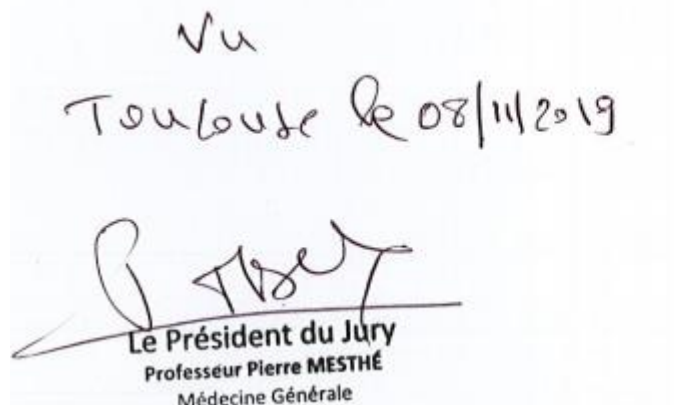 Vu
Toulouse le 08/11/2019
Le Président du Jury
Professeur Pierre MESTHÉ
Médecine Générale